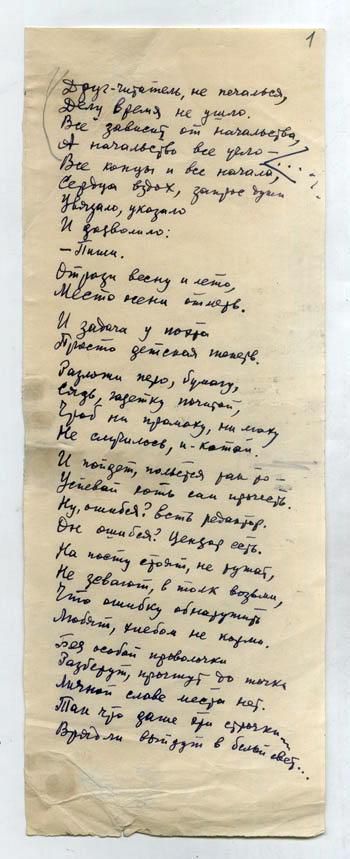 1
Друг-читатель, не печалься,
Делу время не ушло.
Все зависит от начальства,
А начальство все учло —
Все концы и все начала,
Сердца вздох, запрос души
Увязало, указало
И дозволило:
— Пиши.
Отрази весну и лето,
Место осени отметь.
И задача у поэта
Просто детская теперь.
Разложи перо, бумагу,
Сядь, газетку почитай,
Чтоб ни промаху, ни маху
Не случилось, и - катай.
И пойдет, польется
Успевай хоть сам прочесть.
Ну, ошибся? Есть редактор.
Он ошибся? Цензор есть.
На посту стоят, не тужат,
Не зевают, в толк возьми,
Что ошибку обнаружить
Любят, хлебом не корми.
Без особой проволочки
Разберут, прочтут до точки
Личной славе места нет.
Так что даже эти строчки
Вряд ли выйдут в белый свет...